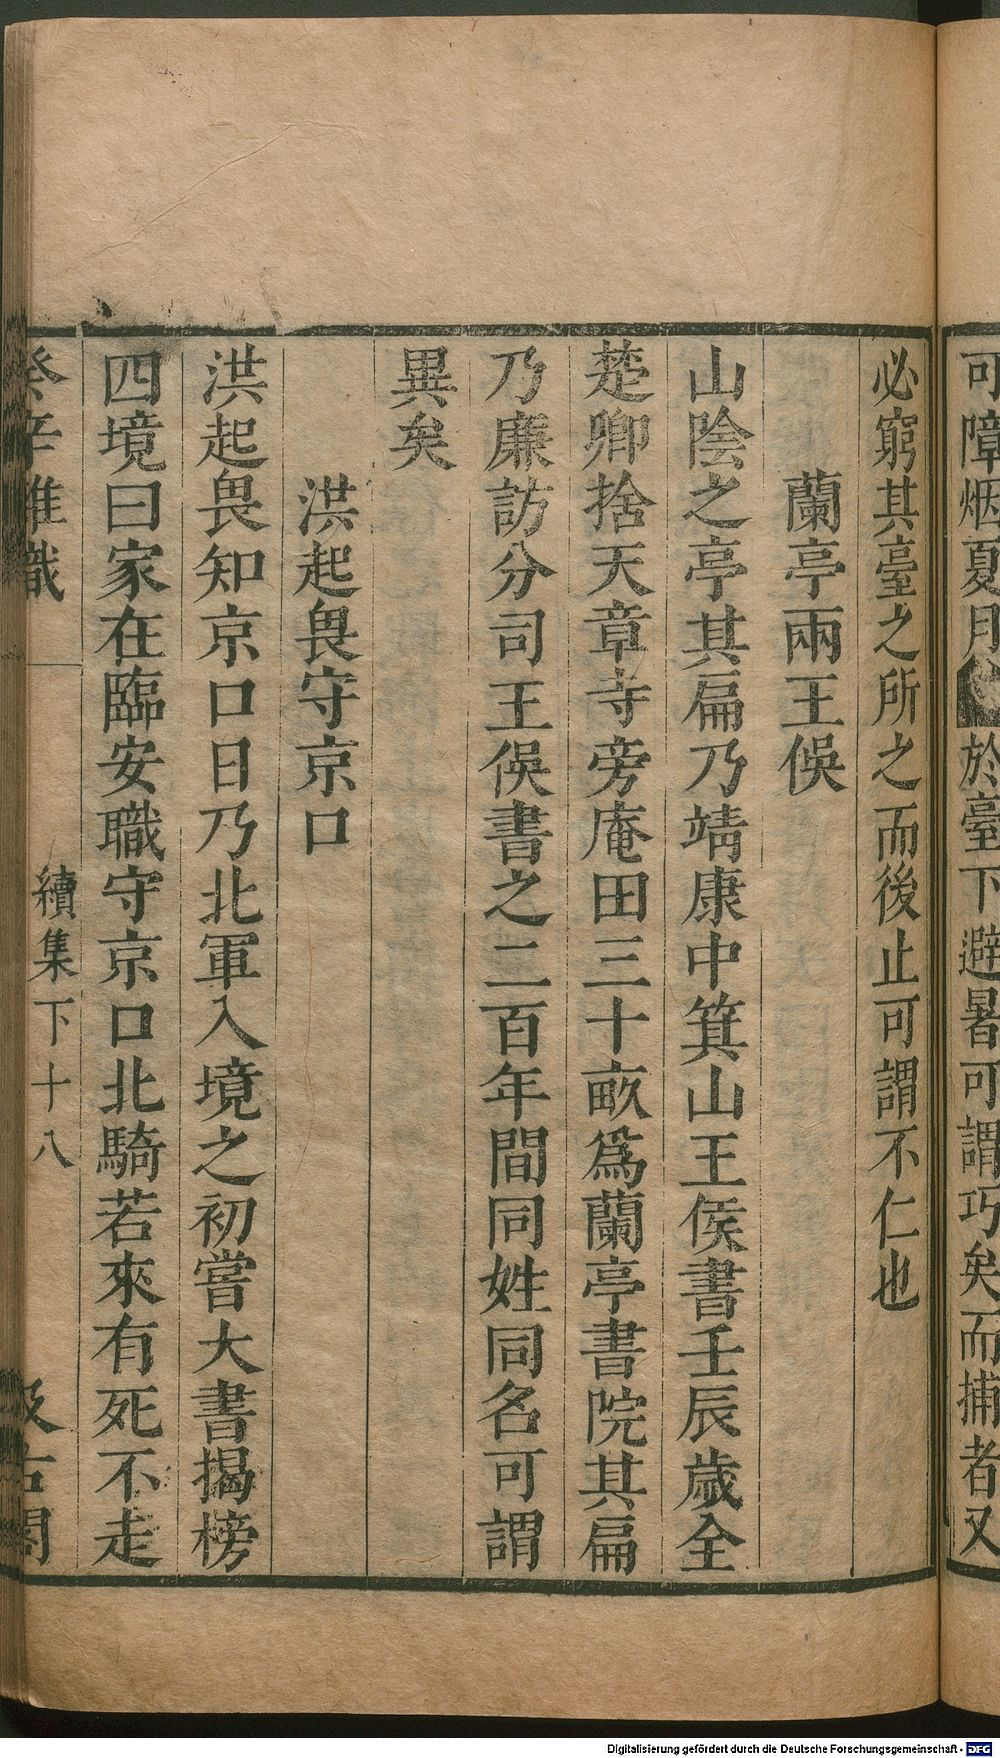 可障烟夏月於臺下避暑可謂巧矣而捕者又
必窮其臺之所之而後止可謂不仁也
蘭亭兩王俁
山陰之亭其扁乃靖康中箕山王俁書壬辰歲全
楚卿捨天章寺旁庵田三十畝爲蘭亭書院其扁
乃廉訪分司王俁書之二百年間同姓同名可謂
異矣
洪起畏守京口
洪起畏知京口日乃北軍入境之初嘗大書揭榜
四境曰家在臨安職守京口北騎若來有死不走
癸辛雜識
續集下
十八
汲古閣
Digitalisierung gefördert durch die Deutsche Forschungsgemeinschaft - DFG